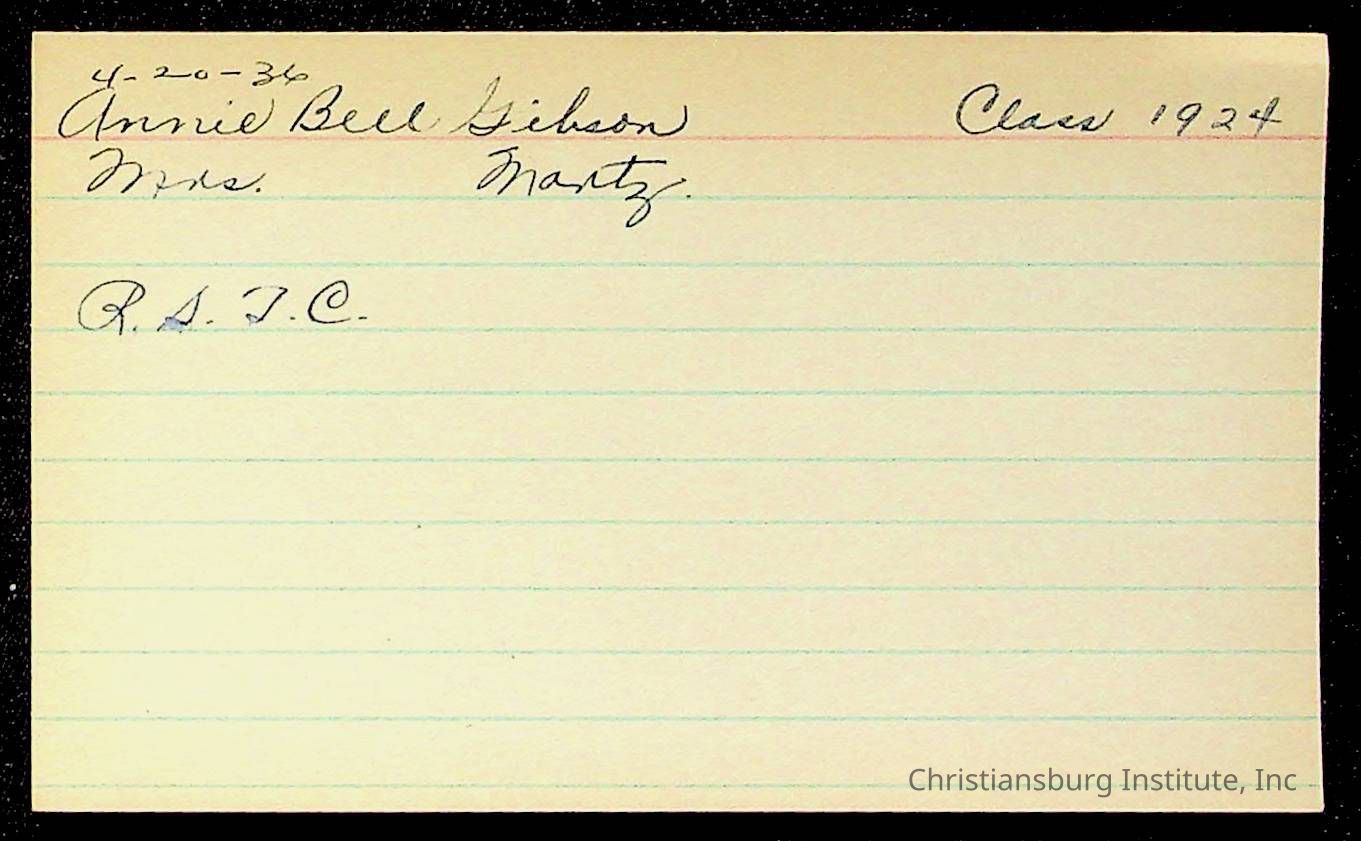 4-20-36
Annie Bell Gibson Class 1924
Mrs. Martz.
R. S. T. C.
Christiansburg Institute, Inc